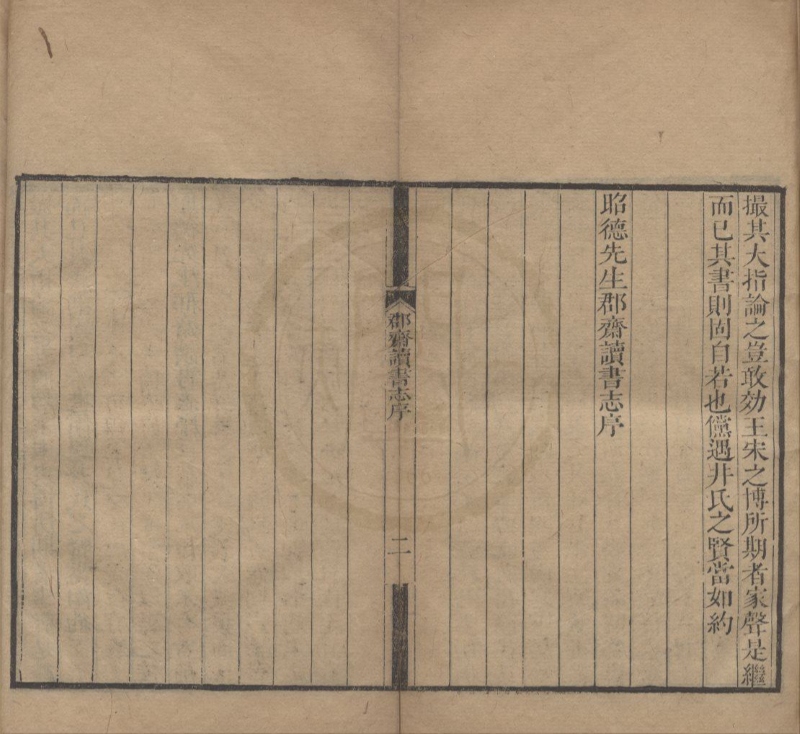 撮其大指論之豈敢効王宋之博所期者家聲是繼
而已其書則固自若也儻遇井氏之賢當如約
昭德先生郡齋讀書志序
郡齋讀書志序
二